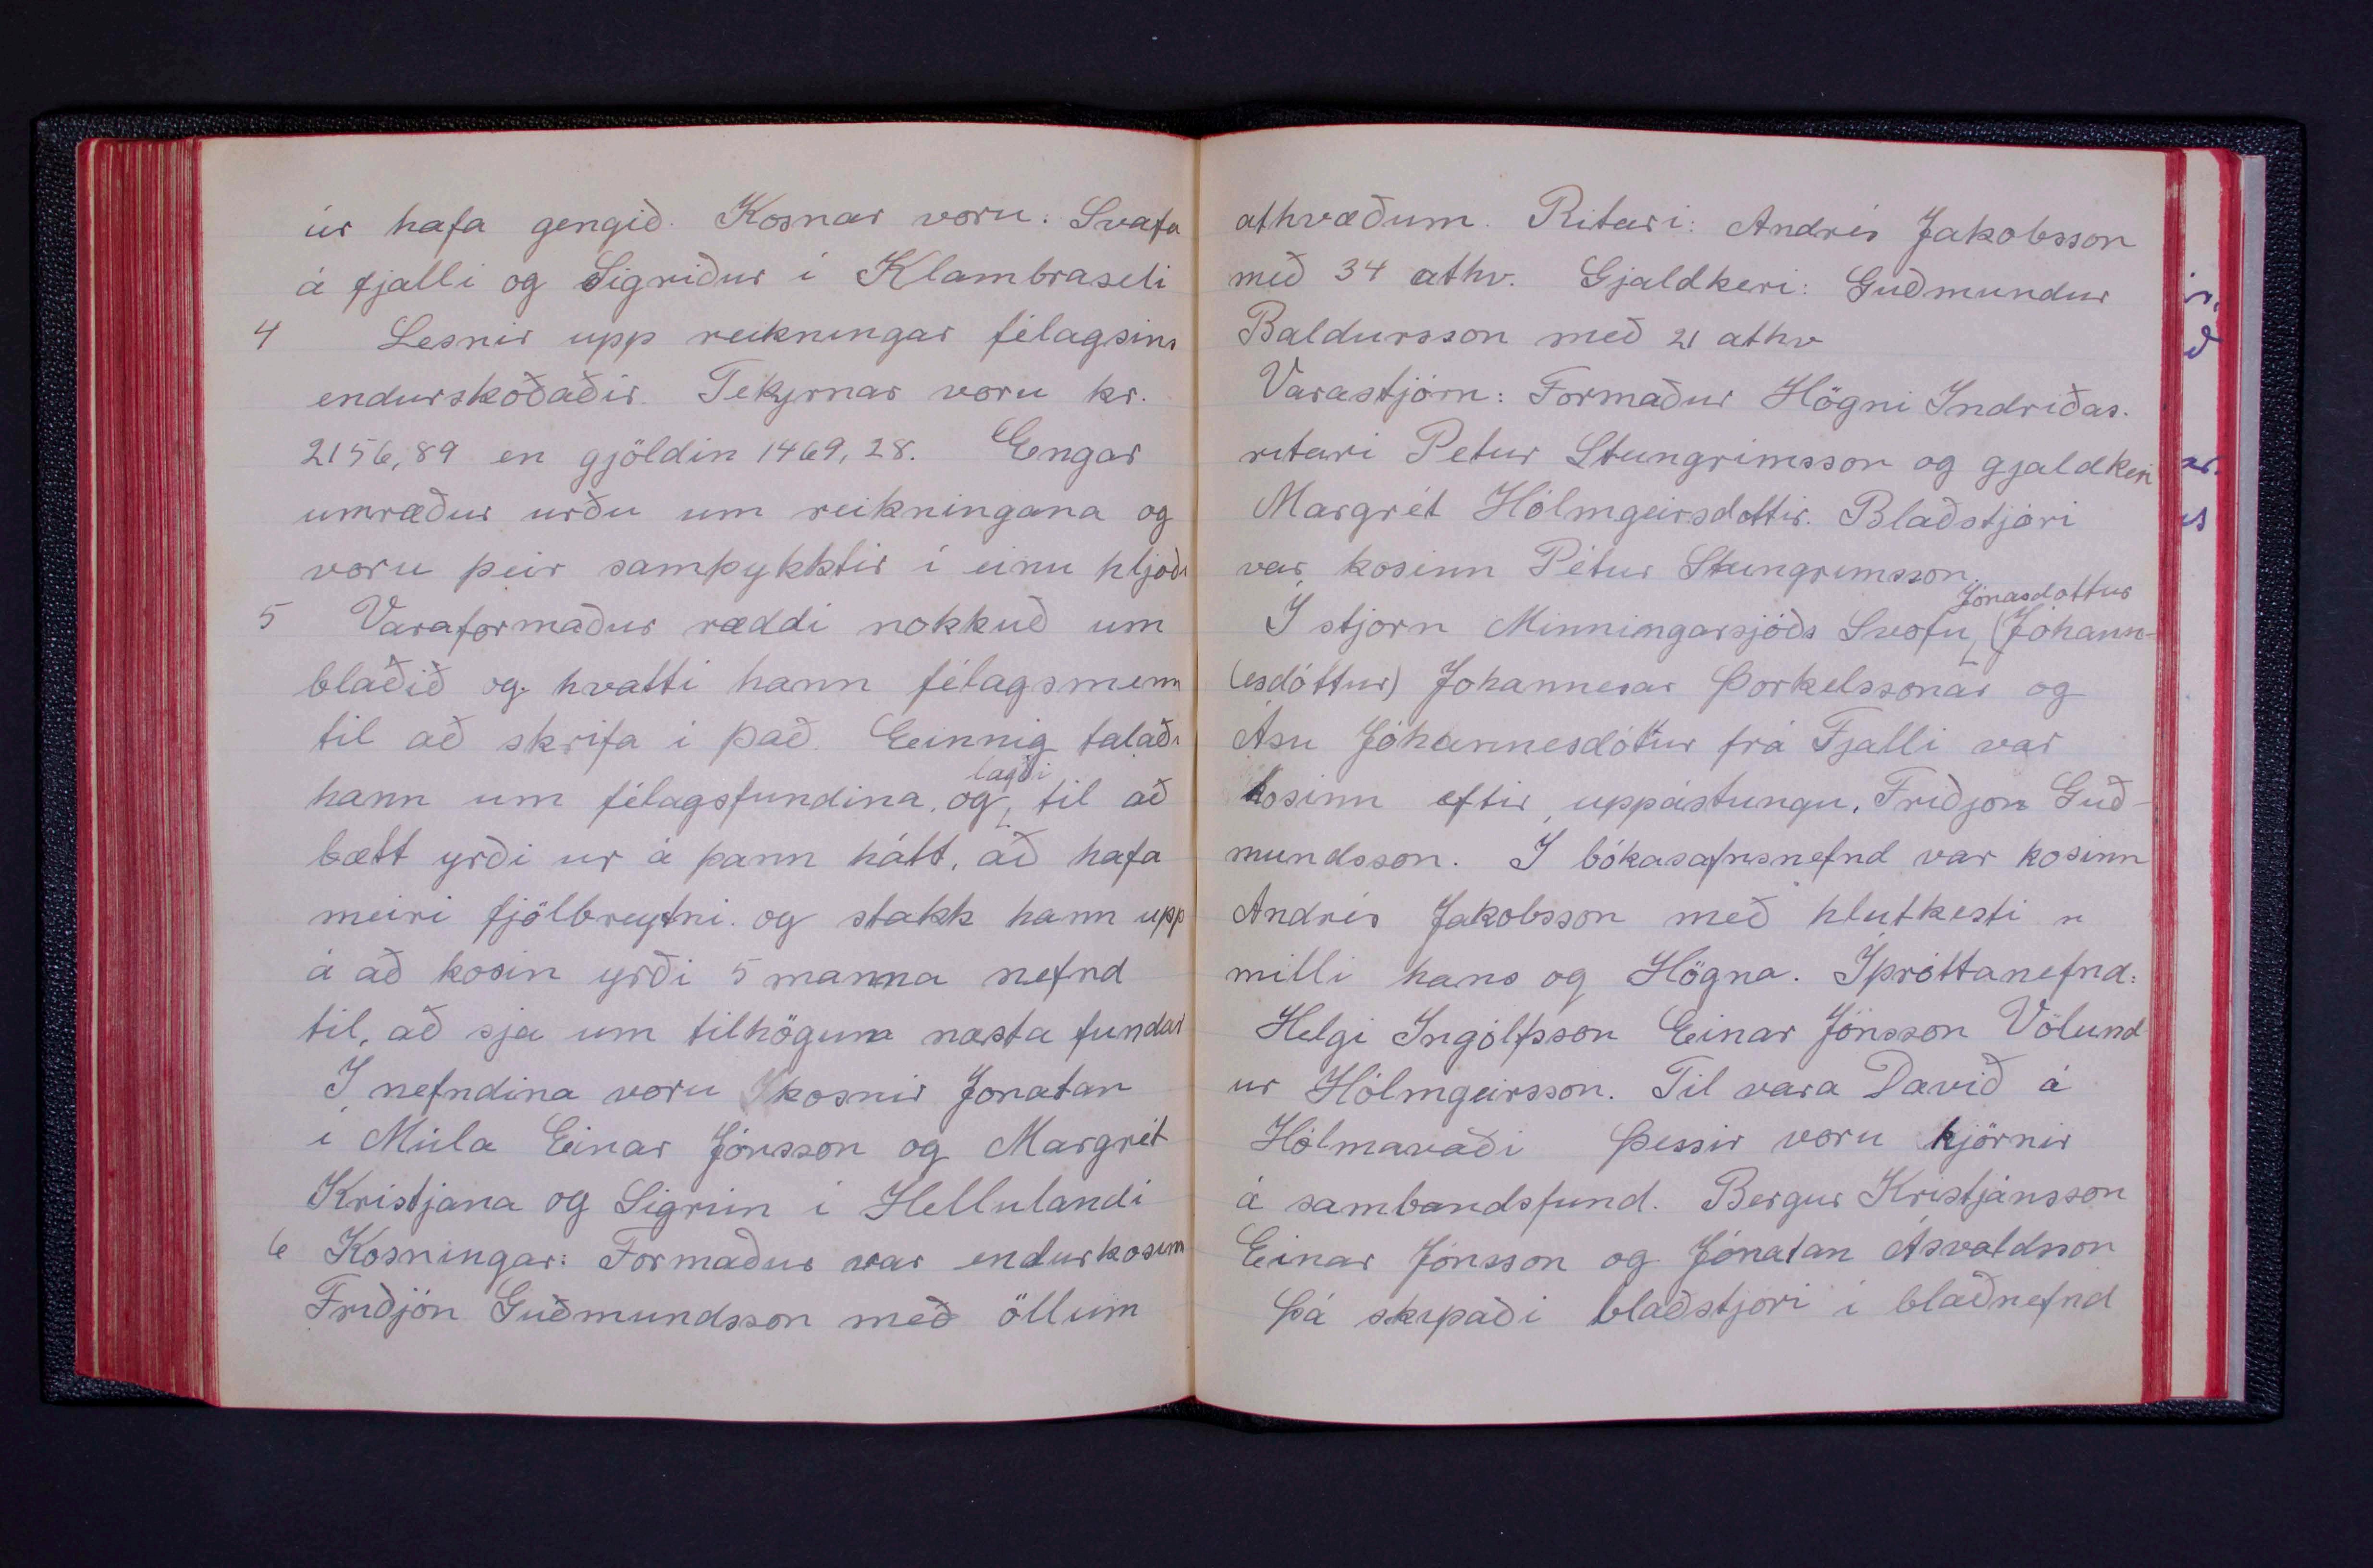 úr hafa gengið. Kosnar voru: Svafa
á fjalli og Sigriður í Klambraseli
4 Lesnir upp reikningar félagsins
endurskoðaðir. Tekjrnar voru kr.
2156,89 en gjöldin 1469,28. Engar
umræður urðu um reikningana og
voru þeir samþykktir í einu hljóði
5 Varaformaður ræddi nokkuð um
blaðið og hvatti hann félagsmenn
til að skrifa í það. Einnig talaði
hann um félagsfundina, og lagði til að
bætt yrði ur á þann hátt, að hafa
meiri fjölbreytni. og stakk hann upp
á að kosin yrði 5 manna nefnd
til, að sja um tilhöguna næsta fundar
Í nefndina voru kosnir Jonatan
í Múla Einar Jónsson og Margrét
Kristjana og Sigrún í Hellulandi
6 Kosningar: Formaður var endurkosinn
Friðjón Guðmundsson með öllum
athvæðum. Ritari: Andrés Jakobsson
með 34 athv. Gjaldkeri: Guðmundur
Baldursson með 21 athv
Varastjórn: Formaður Högni Indriðas.
ritari Petur Steingrímsson og gjaldkeri
Margrét Hólmgeirsdottir. Blaðstjóri
var kosinn Pétur Steingrimsson.
Í stjorn Minningarsjóðs Svofu Jónasdottur (Jóhann-
(esdóttur) Johannesar Þorkelssonar og
Ásu Jóhannesdóttur frá Fjalli var
kosinn eftir uppástungu, Friðjon Guð-
mundsson. Í bókasafnsnefnd var kosinn
Andrés Jakobsson með hlutkesti
milli hans og Högna. Íþróttanefnd:
Helgi Ingólfsson Einar Jónsson Völund
ur Hólmgeirsson. Til vara Davið á
Hólmavaði Þessir voru kjörnir
á sambandsfund. Bergur Kristjánsson
Einar Jónsson og Jónatan Ásvaldsson
Þá skipaði blaðstjori í blaðnefnd